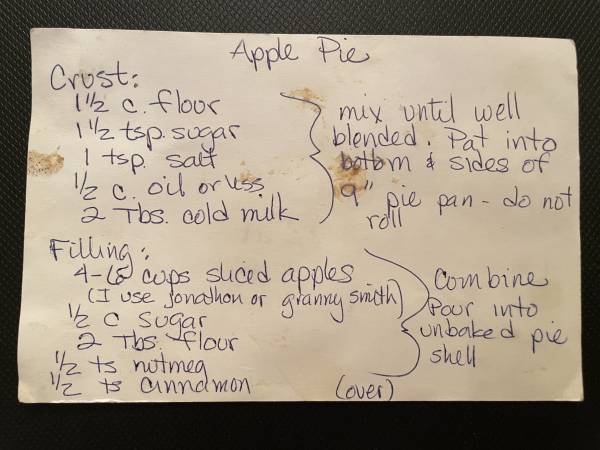 Apple Pie
Crust:
1 1/2 c. flour
1 1/2 tsp. sugar
1 tsp. salt
1/2 c. oil or less
2 Tbs. cold milk
mix until well
blended. Pat into
bottom & sides of
9" pie pan - do not
roll
Filling:
4-6 cups sliced apples
(I use Jonathon or granny smith)
1/2 c sugar
2 Tbs. flour
1/2 ts nutmeg
1/2 ts cinnamon
Combine
Pour into
unbaked pie
shell
(over)